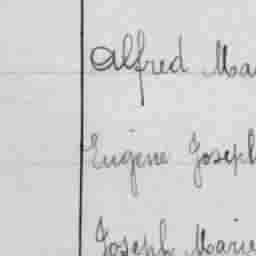 Alfred Ma
Eugène Joseph
Joseph Marie